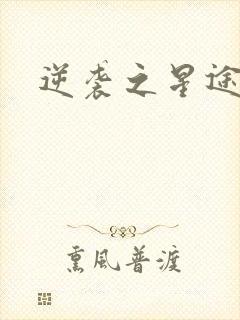 逆袭之星途
熏風普渡